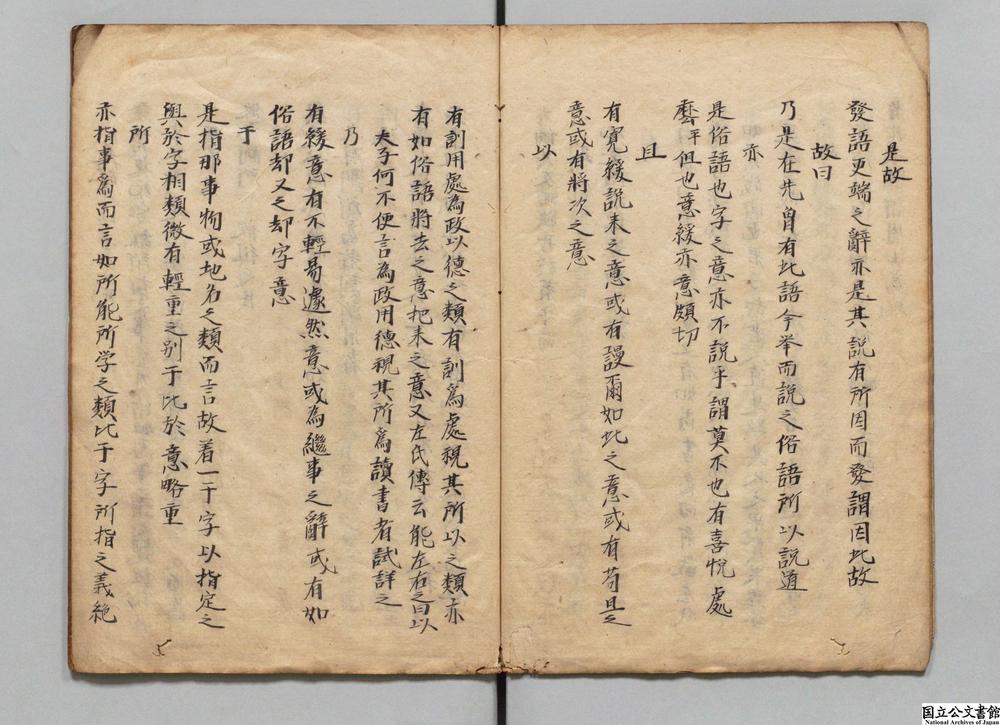 是故
發語更端之辭亦是其說有所因而發謂因此故
故曰
乃是在先曾有此語今举而說之俗語所以說道
亦
是俗語也字之意亦不說乎謂莫不也有喜悅處
麽平但也意緩亦意頗切
且
有寬緩說来之意或有謾爾如此之意或有苟且之
意或有將次之意
以
有訓用處為政以德之類有訓爲處視其所以之類亦
有如俗語將去之意把来之意又左氏傳云能左右之曰以
夫子何不便言為政用德視其所為讀書者試詳之
乃
有緩意有不輕易遽然意或為繼事之辭或有如
俗語却又之却字意
于
是指那事物或地名之類而言故着一于字以指定之
與於字相類微有輕重之别于比於意略重
所
亦指事爲而言如所能所学之類比于字所指之義絶
国立公文書館
National Archives of Japan